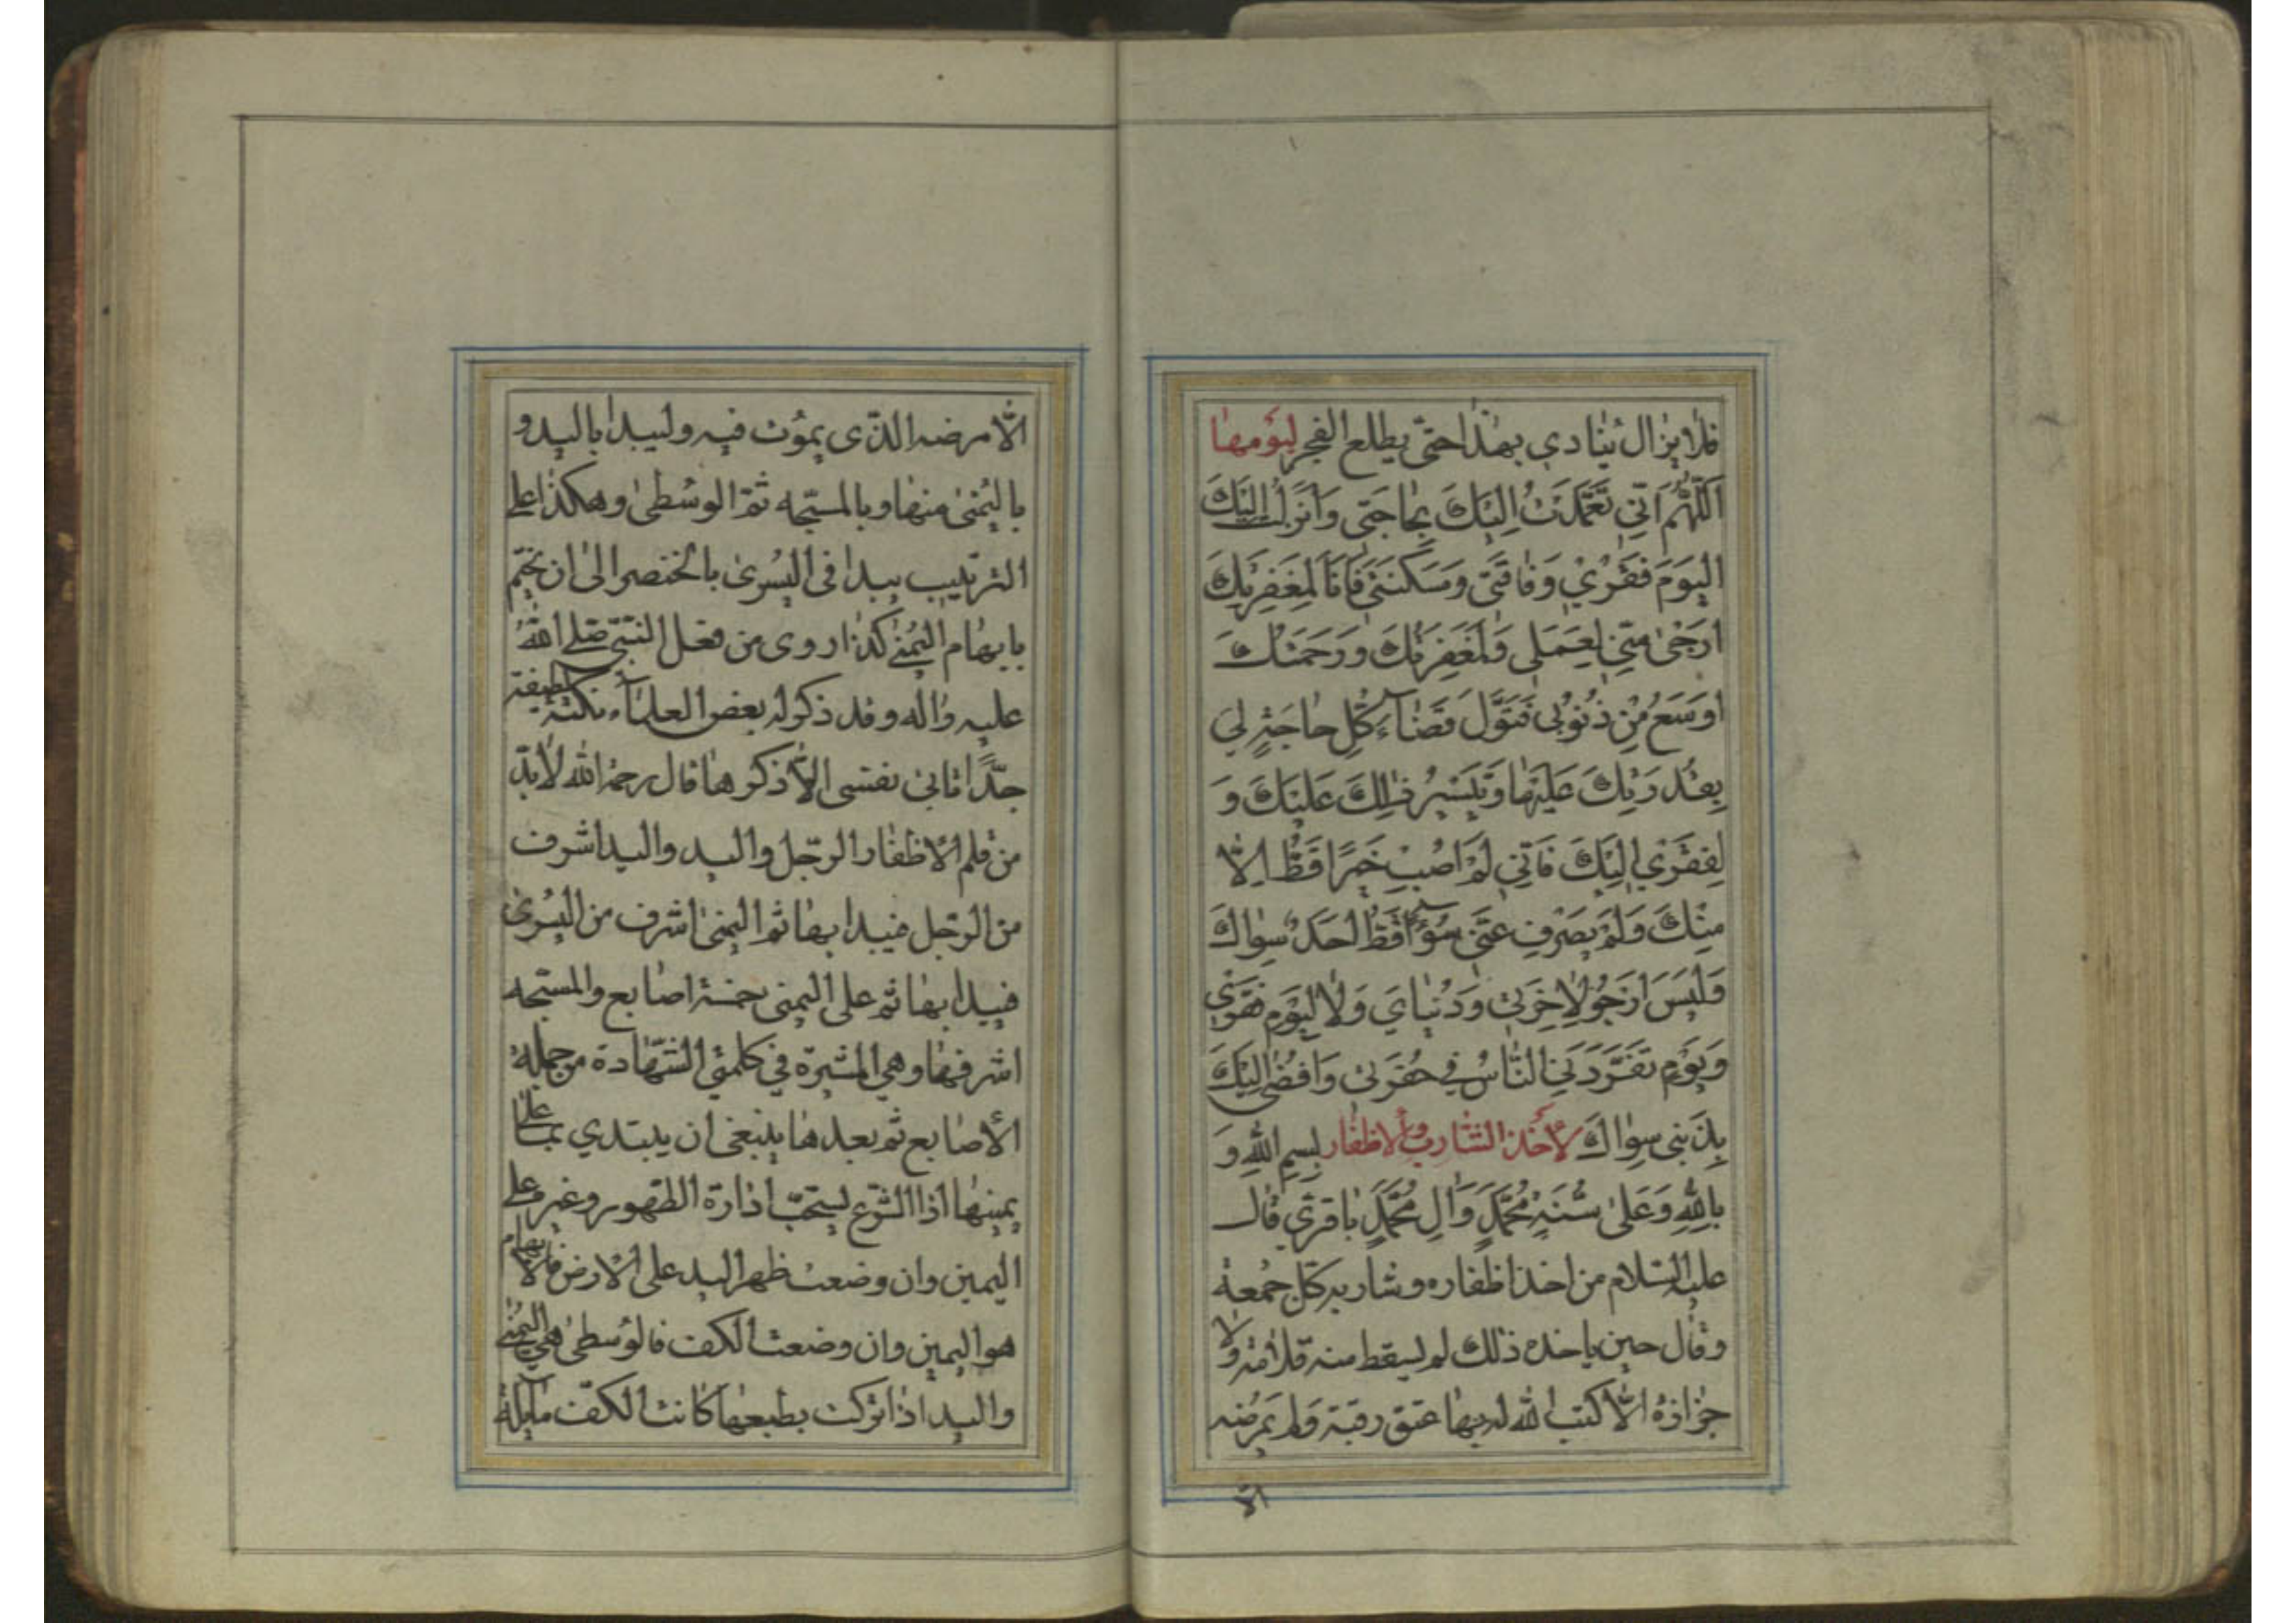 فلا يزال ينادي بهذا حتى يطلع الفجر ليومها
اَللّهُمَّ اِنّي تَعَمَّدْتُ اِلَيْكَ بِحاجَتي وَاَنْزَلْتُ اِلَيْكَ
الْيَوْمَ فَقْري وَفاقَتي وَمَسْكَنَتي فَاَنَا لِمَغْفِرَتِكَ
اَرْجى مِنّي لِعَمَلي وَلَمَغْفِرَتُكَ وَرَحْمَتُكَ
اَوْسَعُ مِنْ ذُنُوبي فَتَوَلَّ قَضآءَ كُلِّ حاجَةٍ لي
بِقُدْرَتِكَ عَلَيْها وَتَيْسيرُ ذلِكَ عَلَيْكَ وَ
لِفَقْري اِلَيْكَ فَاِنّي لَمْ اُصِبْ خَيْرًا قَطُّ اِلّا
مِنْكَ وَلَمْ يَصْرِفْ عَنّي سُوءًا قَطُّ اَحَدٌ سِواكَ
وَلَيْسَ اَرْجُو لِاخِرَتي وَدُنْيايَ وَلا لِيَوْمِ فَقْري
وَيَوْمِ تَفَرَّدَنِي النّاسُ في حُفْرَتي وَاُفْضي اِلَيْكَ
بِذَنْبي سِواكَ لأخذ الشارب والأظفار بِسْمِ اللهِ وَ
بِاللهِ وَعَلى سُنَّةِ مُحَمَّدٍ وَالِ مُحَمَّدٍ باقري قال
عليه السلام من اخذ اظفاره وشاربه كل جمعة
وقال حين ياخذه ذلك لم يسقط منه قلامة ولا
جزازة الّا كتب الله له بها عتق رقبة ولم يمرض
الّا
الّا مرضه الذي يموت فيه وليبدا باليد و
باليمنى منها وبالمسبحه ثم الوسطى وهكذا على
الترتيب يبدا في اليسرى بالخنصر الى ان يختم
بابهام اليمنى كذا روى من فعل النبي صلى الله
عليه واله وقد ذكر له بعض العلماء نكتة لطيفة
جدًّا تابى نفسي الّا ذكرها قال رحمه الله لا بدّ
من قلم الاظفار الرجل واليد واليد اشرف
من الرجل فيبدا بها ثم اليمنى اشرف من اليسرى
فيبدا بها ثم على اليمنى خمسة اصابع والمسبحه
اشرفها وهي المشيرة في كلمتي الشهادة من جملة
الأصابع ثم بعدها ينبغي ان يبتدي بما على
يمينها اذ الشرع يستحبّ ادارة الطهور وغيره على
اليمين وان وضعت ظهر اليد على الارض فالابهام
هو اليمين وان وضعت الكف فالوسطى هي اليمنى
واليد اذا تركت بطبعها كانت الكف مايلة